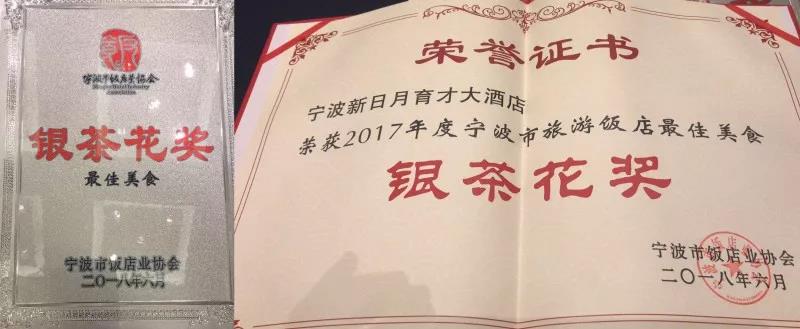 宁波市饭店业协会
Ningbo Hotel Industry
Association
银茶花奖
最佳美食
宁波市饭店业协会
二〇一八年六月
荣誉证书
宁波新日月育才大酒店
荣获2017年度宁波市旅游饭店最佳美食
银茶花奖
宁波市饭店业协会
二〇一八年六月